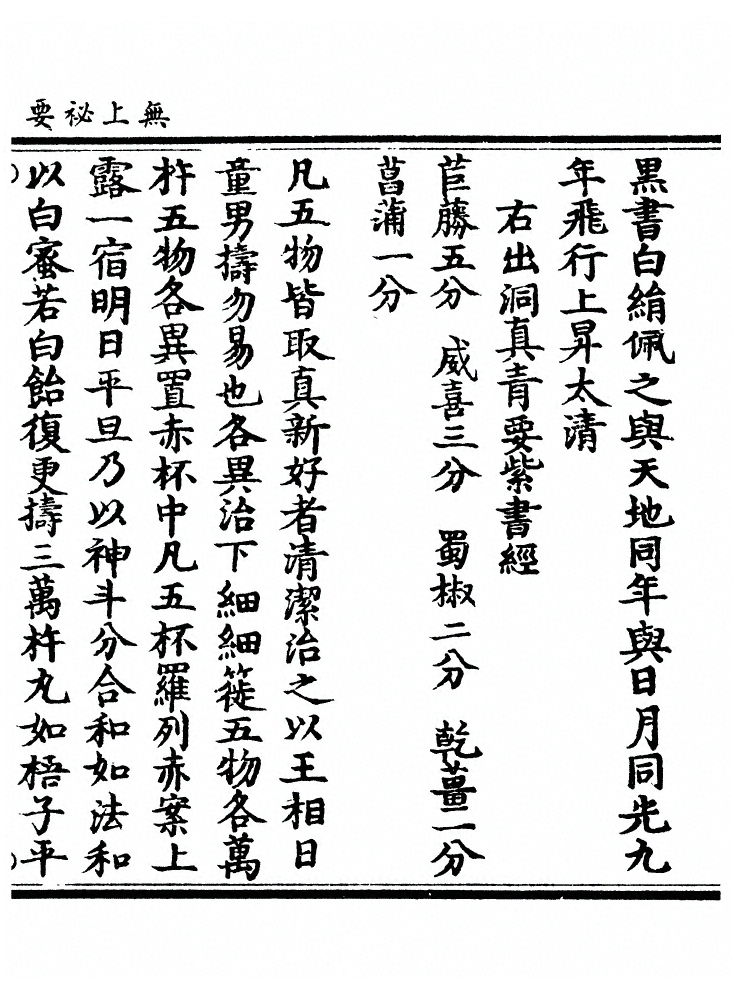 無上祕要
黑書白絹佩之與天地同年與日月同光九
年飛行上昇太清
右出洞真青要紫書經
苣藤五分 威喜三分 蜀椒二分 乾薑一分
菖蒲一分
凡五物皆取真新好者清潔治之以王相日
童男擣勿易也各異治下細細簁五物各萬
杵五物各異置赤杯中凡五杯羅列赤案上
露一宿明日平旦乃以神斗分合和如法和
以白蜜若白飴復更擣三萬杵丸如梧子平